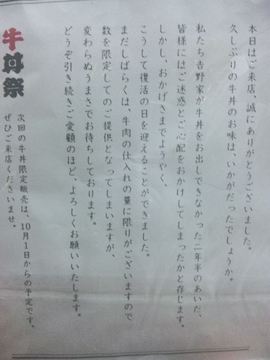 本日はご来店、誠にありがとうございました。
久しぶりの牛丼のお味は、いかがだったでしょうか。
私たち吉野家が牛丼をお出しできなかった二年半のあいだ、
皆様にはご迷惑とご心配をおかけしてしまったかと存じます。
しかし、おかげさまでようやく、
こうして復活の日を迎えることができました。
まだしばらくは、牛肉の仕入れの量に限りがございますので
数を限定してのご提供となってしまいますが、
変わらぬうまさでお待ちしております。
どうぞ引き続きご愛顧のほど、よろしくお願いいたします。
牛丼祭
次回の牛丼限定販売は、10月1日からの予定です。
ぜひご来店くださいませ。